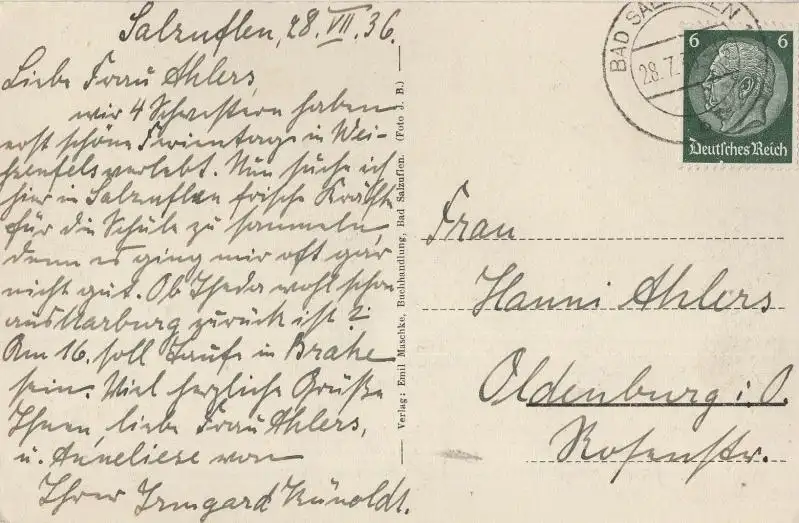 Salzuflen, 28. VII. 36.
Liebe Frau Ahlers,
wir 4 Schwestern haben
erst schöne Ferientage in Wei-
ßenfels verlebt. Nun suche ich
hier in Salzuflen frische Kräfte
für die Schule zu sammeln,
denn es ging mir oft gar
nicht gut. Ob Theda wohl schon
aus Marburg zurück ist?
Am 16. soll Taufe in Brake
sein. Viel herzliche Grüße
Ihnen, liebe Frau Ahlers,
u. Anneliese von
Ihrer Irmgard Künoldt.
Verlag: Emil Maschke, Buchhandlung, Bad Salzuflen. (Foto J. B.)
BAD SALZUFLEN
28.7.
6 6
Deutsches Reich
Frau
Hanni Ahlers
Oldenburg i. O.
Rosenstr.